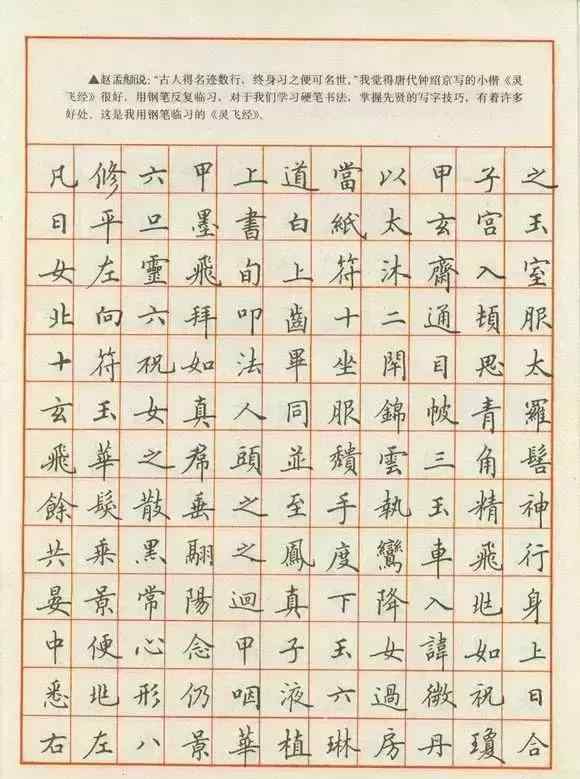 ▲赵孟頫说：“古人得名迹数行，终身习之便可名世。”我觉得唐代钟绍京写的小楷《灵
飞经》很好，用钢笔反复临习，对于我们学习硬笔书法，掌握先贤的写字技巧，有着许多
好处。这是我用钢笔临习的《灵飞经》。
凡修六甲上道當以甲子之
日平旦墨書白紙太玄宮玉
女左靈飛旬上符沐齋入室
北向六拜叩齒十二通頓服
十符祝如法畢坐閉目思太
玄玉女真人同服錦帔青羅
飛華之帬頭並頹雲三角髻
餘髮散垂之至手執玉精神
共乘黑翮之鳳度鸞車飛行
晏景常陽迴真下降入兆身
中便心念甲子玉女諱如上
悉兆形仍咽液六過微祝日
右左八景華植琳房丹瓊合